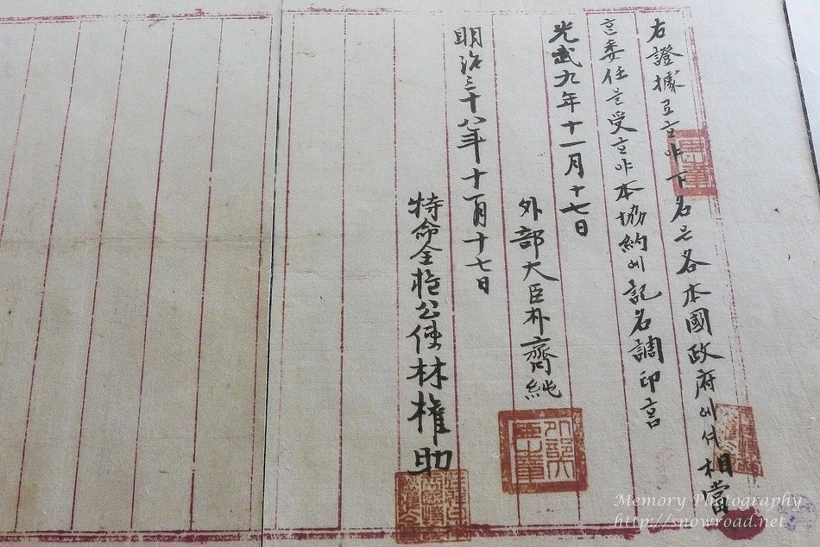 右證據로ᄒᆞ야下名은各本國政府에셔相當
ᄒᆞᆫ委任을受ᄒᆞ야本協約에記名調印ᄒᆞᆷ
光武九年十一月十七日
外部大臣朴齊純
外部大臣之章
明治三十八年十一月十七日
特命全權公使林權助
Memory Photography
http://snowroad.net